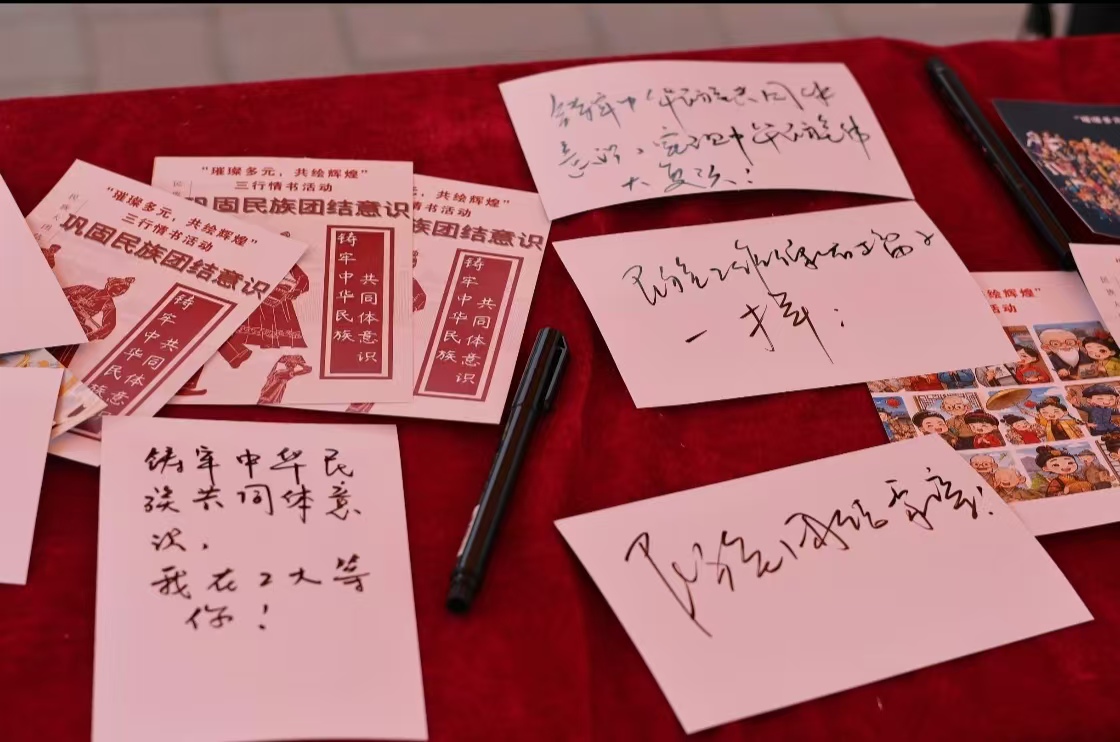 "璀璨多元，共绘辉煌"
三行情书活动
巩固民族团结意识
铸牢中华民族
共同体意识
"璀璨多元，共绘辉煌"
三行情书活动
巩固民族团结意识
铸牢中华民族
共同体意识
共绘辉煌"
情书活动
民族团结意识
铸牢中华民族
共同体意识
铸牢中华民族共同体
意识，实现中华民族伟
大复兴！
民族
一样
民族团结家庭！
铸牢中华民
族共同体意
识，
我在工大等
你！
"璀璨多
绘辉煌"
活动